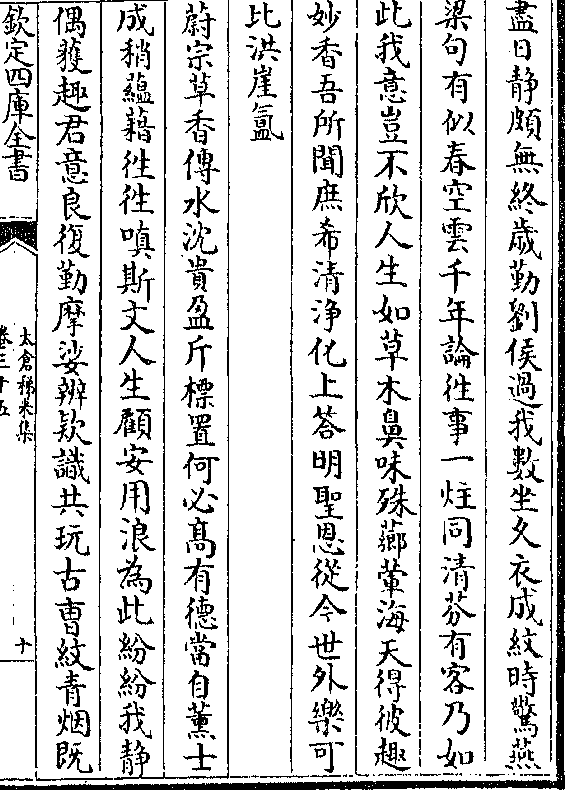 盡日静頗無終歳勤劉侯過我數坐久衣成紋時驚燕
梁句有似春空雲千年論徃事一炷同清芬有客乃如
此我意豈不欣人生如草木鼻味殊薌葷海天得彼趣
妙香吾所聞庶希清浄化上荅明聖恩從今世外樂可
比洪崖氲
蔚宗草香傳水沈貴盈斤標置何必髙有德當自薫士
成稍蘊藉徃徃嗔斯文人生顧安用浪為此紛紛我静
偶獲趣君意良復勤摩娑辨欵識共玩古曹紋青烟既
欽定四庫全書
太倉稊米集
卷三十五
十